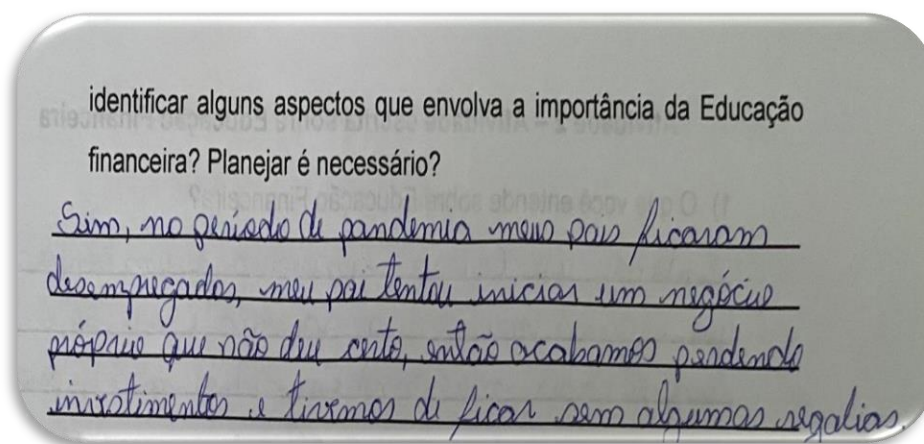 identificar alguns aspectos que envolva a importância da Educação
financeira? Planejar é necessário?
Sim, no período de pandemia meus pais ficaram
desempregados, meu pai tentou iniciar um negócio
próprio que não deu certo, então acabamos perdendo
investimentos e tivemos de ficar sem algumas regalias.